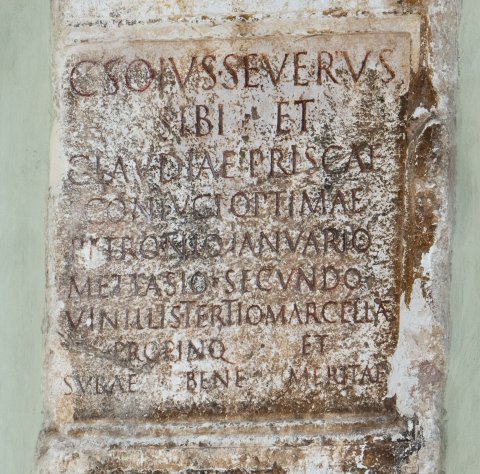 C·SOIVS·SEVERVS
SIBI · ET
CLAVDIAE·PRISCAE
CONIVGI OPTIMAE
PETRONIO IANVARIO
METTASIO·SECVNDO
TERTIO MARCELLAE
PROPINQ · ET
SVRAE BENE MERITAE